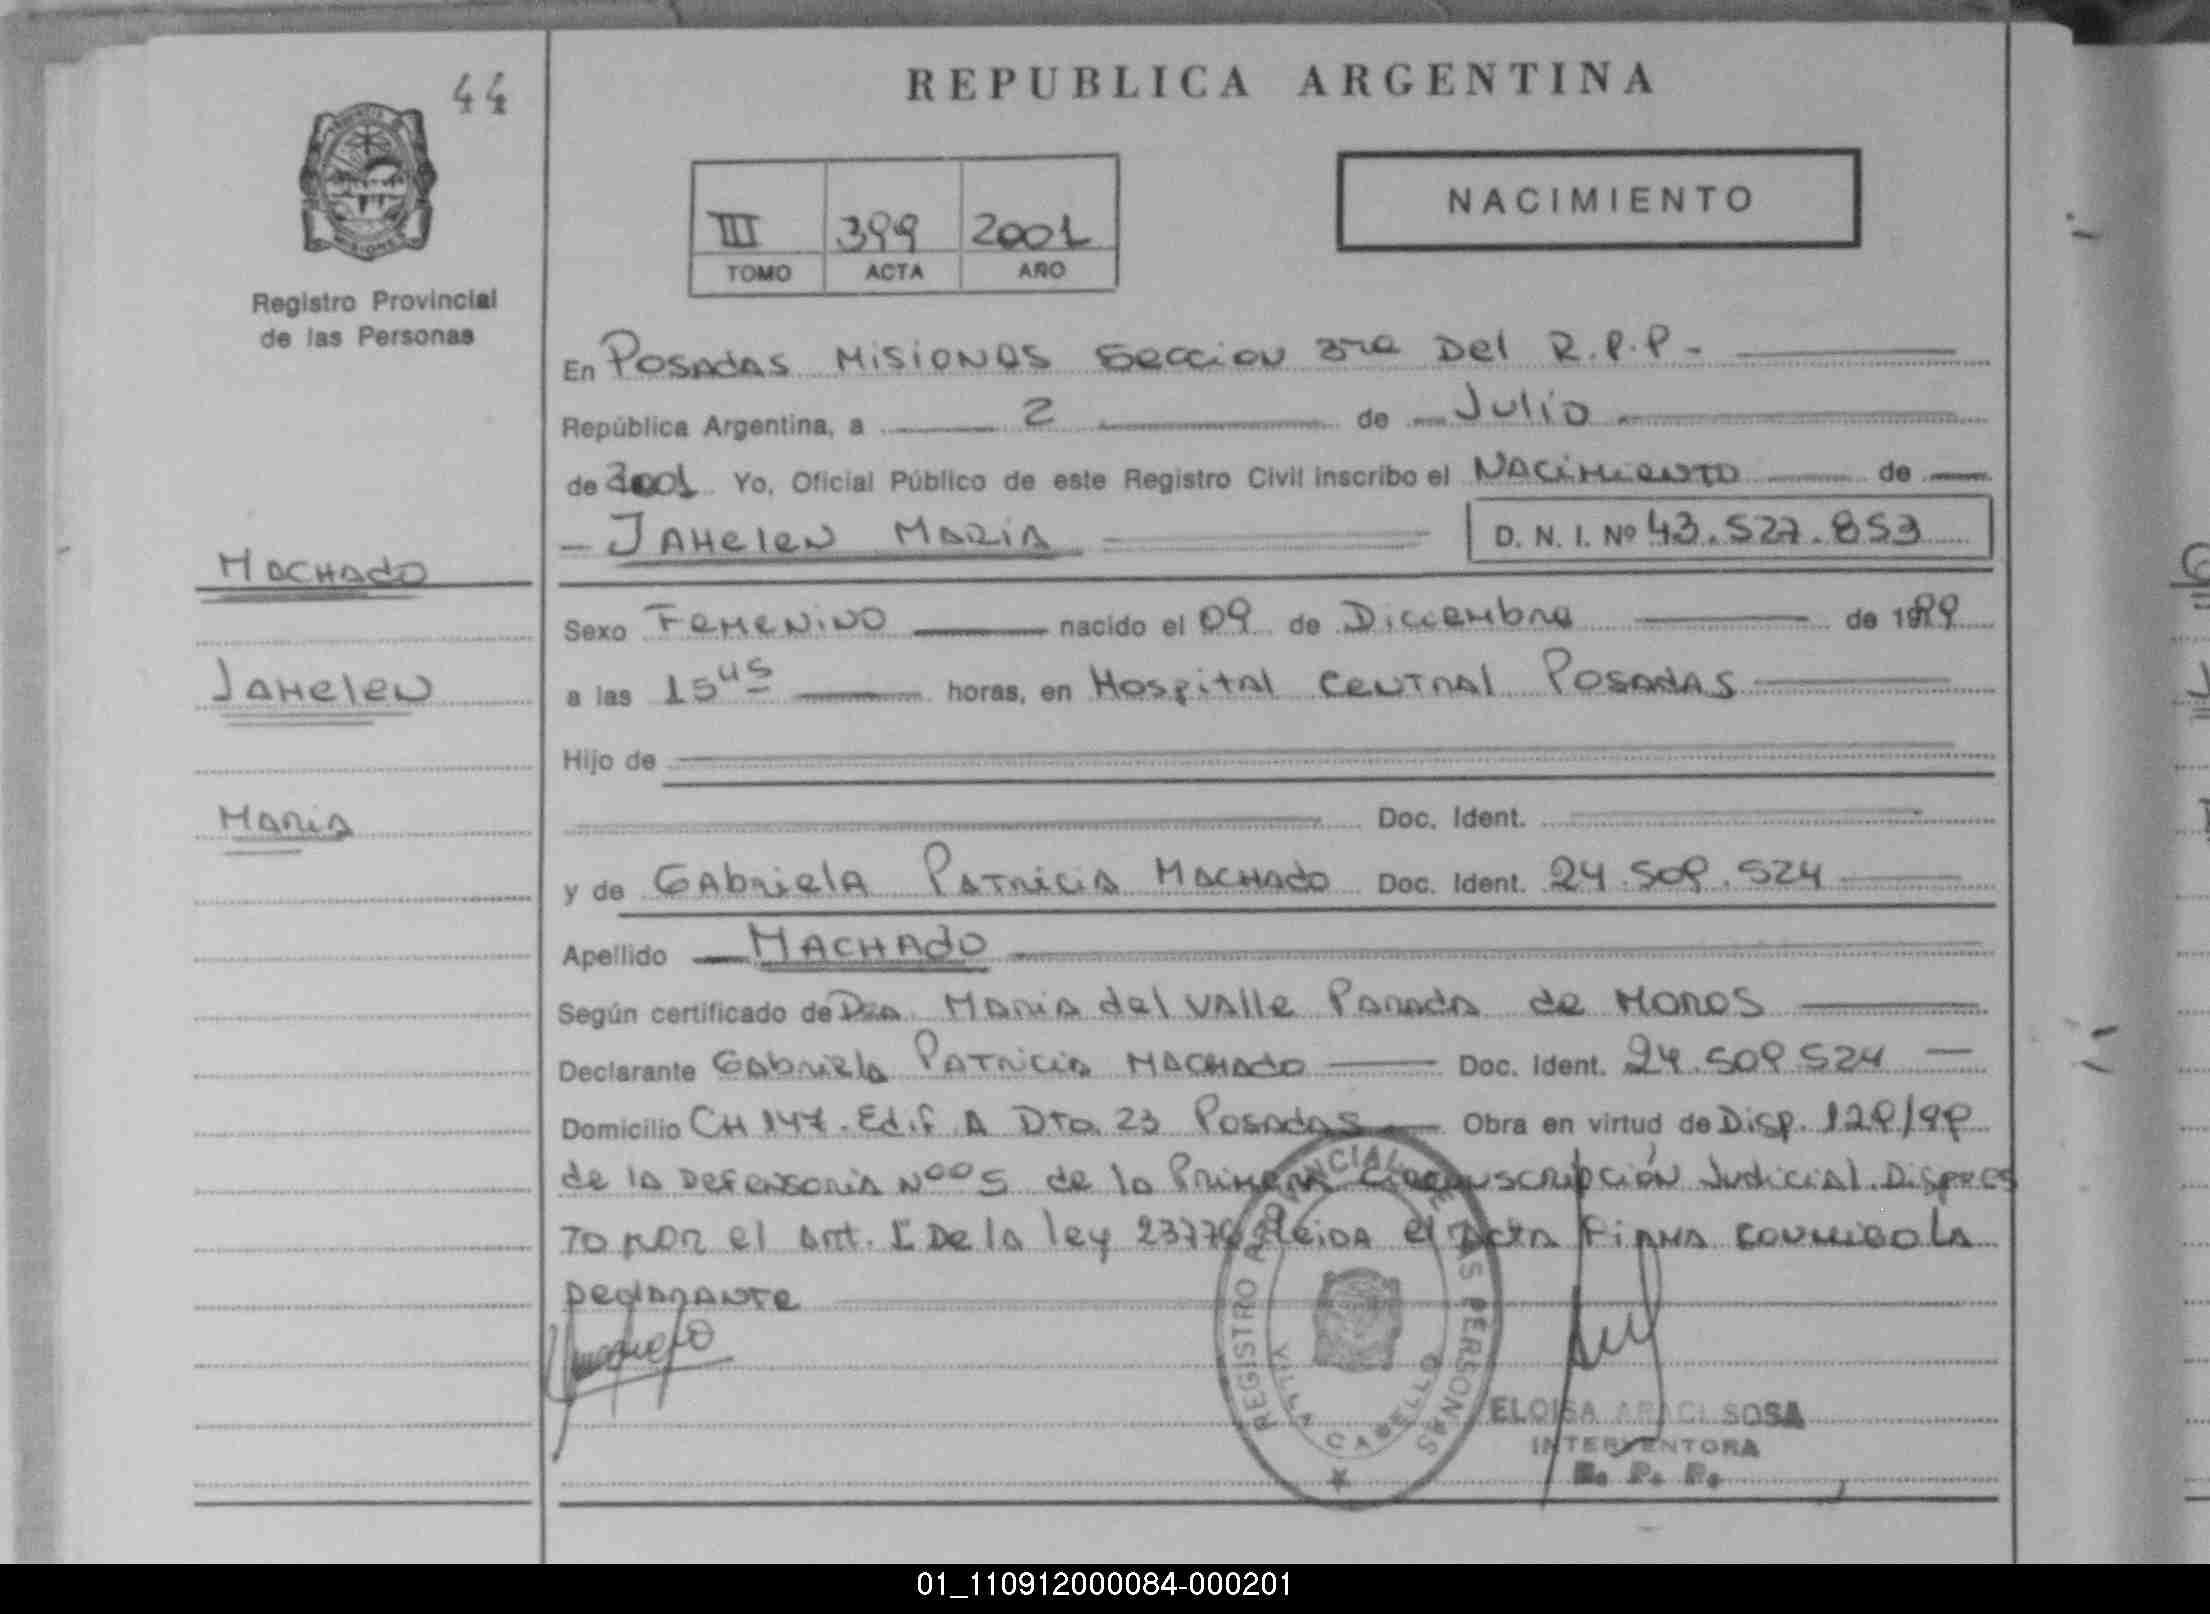 44
REPUBLICA ARGENTINA
NACIMIENTO
III 399 2001
TOMO ACTA AÑO
MISIONES
Registro Provincial
de las Personas
En Posadas Misiones Seccion 3ra Del R.P.P. -
República Argentina, a 2 de Julio
de 2001 Yo, Oficial Público de este Registro Civil inscribo el Nacimiento de
- Jahelen Maria D. N. I. Nº 43.527.853
Machado
Sexo Femenino nacido el 09 de Diciembre de 1999
Jahelen
a las 15 45 horas, en Hospital Central Posadas
Hijo de
Doc. Ident.
Maria
y de Gabriela Patricia Machado Doc. Ident. 24.509.524
Apellido Machado
Según certificado de Dra Maria del Valle Parada de Moros
Declarante Gabriela Patricia Machado Doc. Ident. 24.509.524
Domicilio CH 147. Edif A Dto. 23 Posadas Obra en virtud de Disp. 129/99
de la Defensoria Nº 05 de la Primera Circunscripción Judicial. Dispues
to por el art. 1 De la ley 23776 Leida el Acta Firma conmigo la
Declarante
REGISTRO PROVINCIAL DE LAS PERSONAS
VILLA CABELLO
ELOISA ARACI SOSA
INTERVENTORA
R. P. P.
01_110912000084-000201